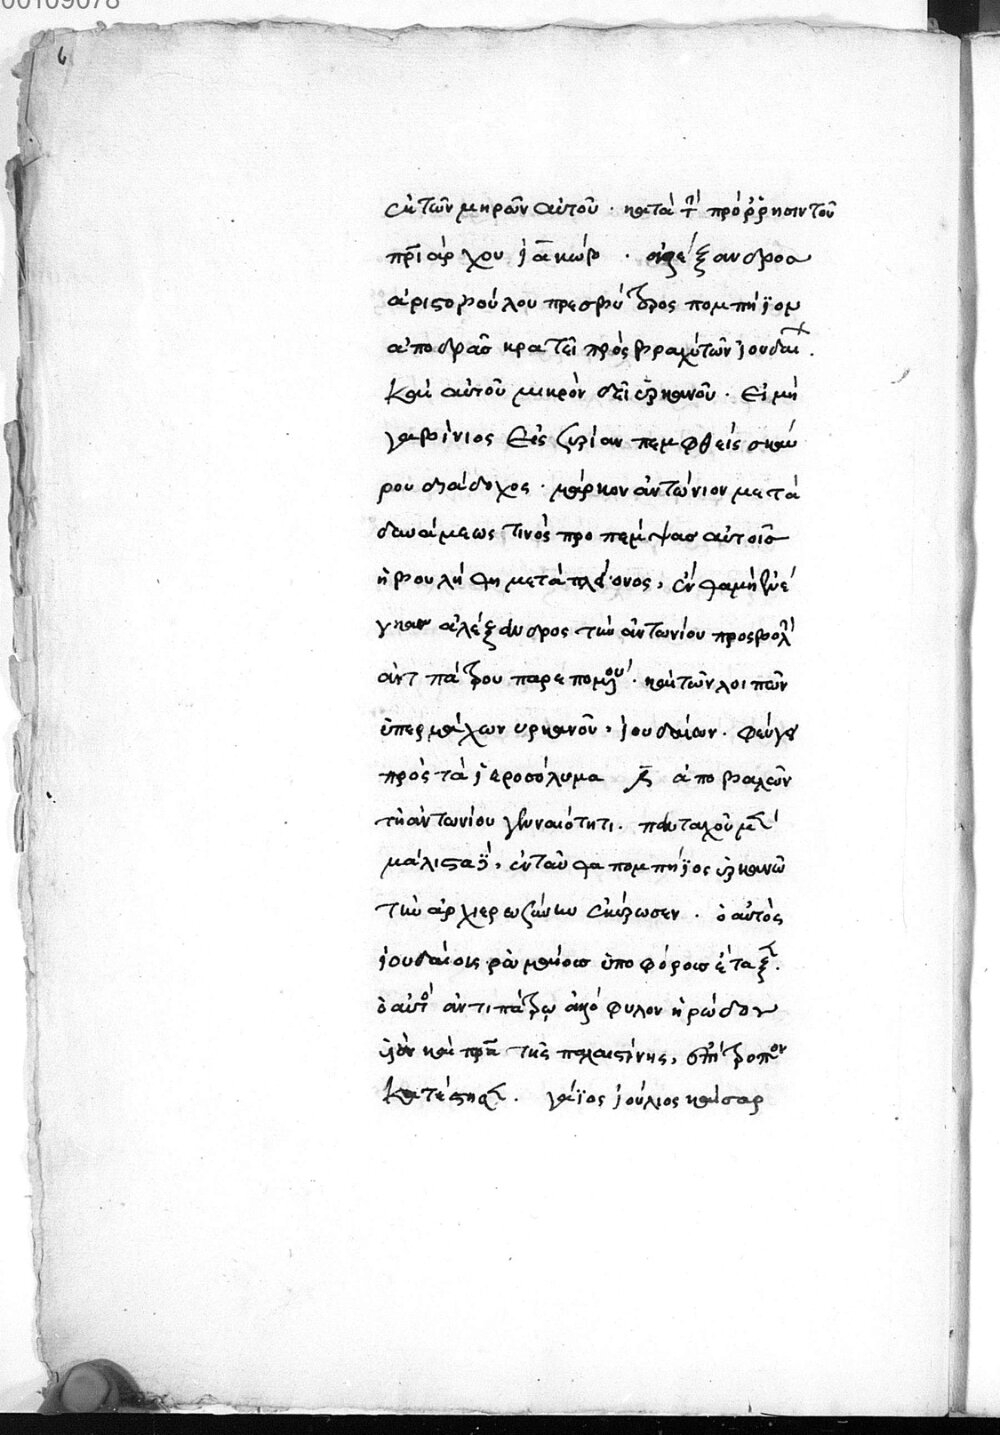 00109078
6
ἐκ τῶν μηρῶν αὐτοῦ · κατὰ τ πρόῤῥησιν τοῦ
πρϊάρχου ἰακώβ · ἀλέξανδρος
ἀριστοβούλου πρεσβύτερος πομπήϊον
ἀποδρὰς κρατεῖ πρὸς βραχὺ τῶν ἰουδαι .
καὶ αὐτοῦ μικρὸν δεῖ ὑρκανοῦ · εἰ μὴ
γαβίνιος εἰς συρίαν πεμφθεὶς σκαύ
ρου διάδοχος · μάρκον ἀντώνιον μετὰ
δυνάμεως τινὸς προπέμψας αὐτοῖς
μετὰ πλείονος,
ἀλέξανδρος τὴν ἀντωνίου προσβολ
ἀντιπάτρου · καὶ τῶν λοιπῶν
ὑπερμάχων υρκανοῦ, ἰουδαίων · φεύγει
πρὸς τὰ ἱεροσόλυμα ἀποβαλὼν
τῆ ἀντωνίου γενναιότητι · πανταχοῦ μ
μάλιστα , ἐνταῦθα πομπήϊος ὑρκανῶ
τὴν ἀρχιερωσύνην ἐκύρωσεν · ὁ αὐτὸς
ἰουδαίους ῥωμαίοις ὑποφόρους ἔταξ .
ὁ αὐτ ἀντιπάτρω ἀλλόφυλον ἡρώδου
υἱὸν καὶ πρα τῆς παλαιστίνης, ἐπίτροπον
κατέστησ . γάϊος ἰούλιος καῖσαρ